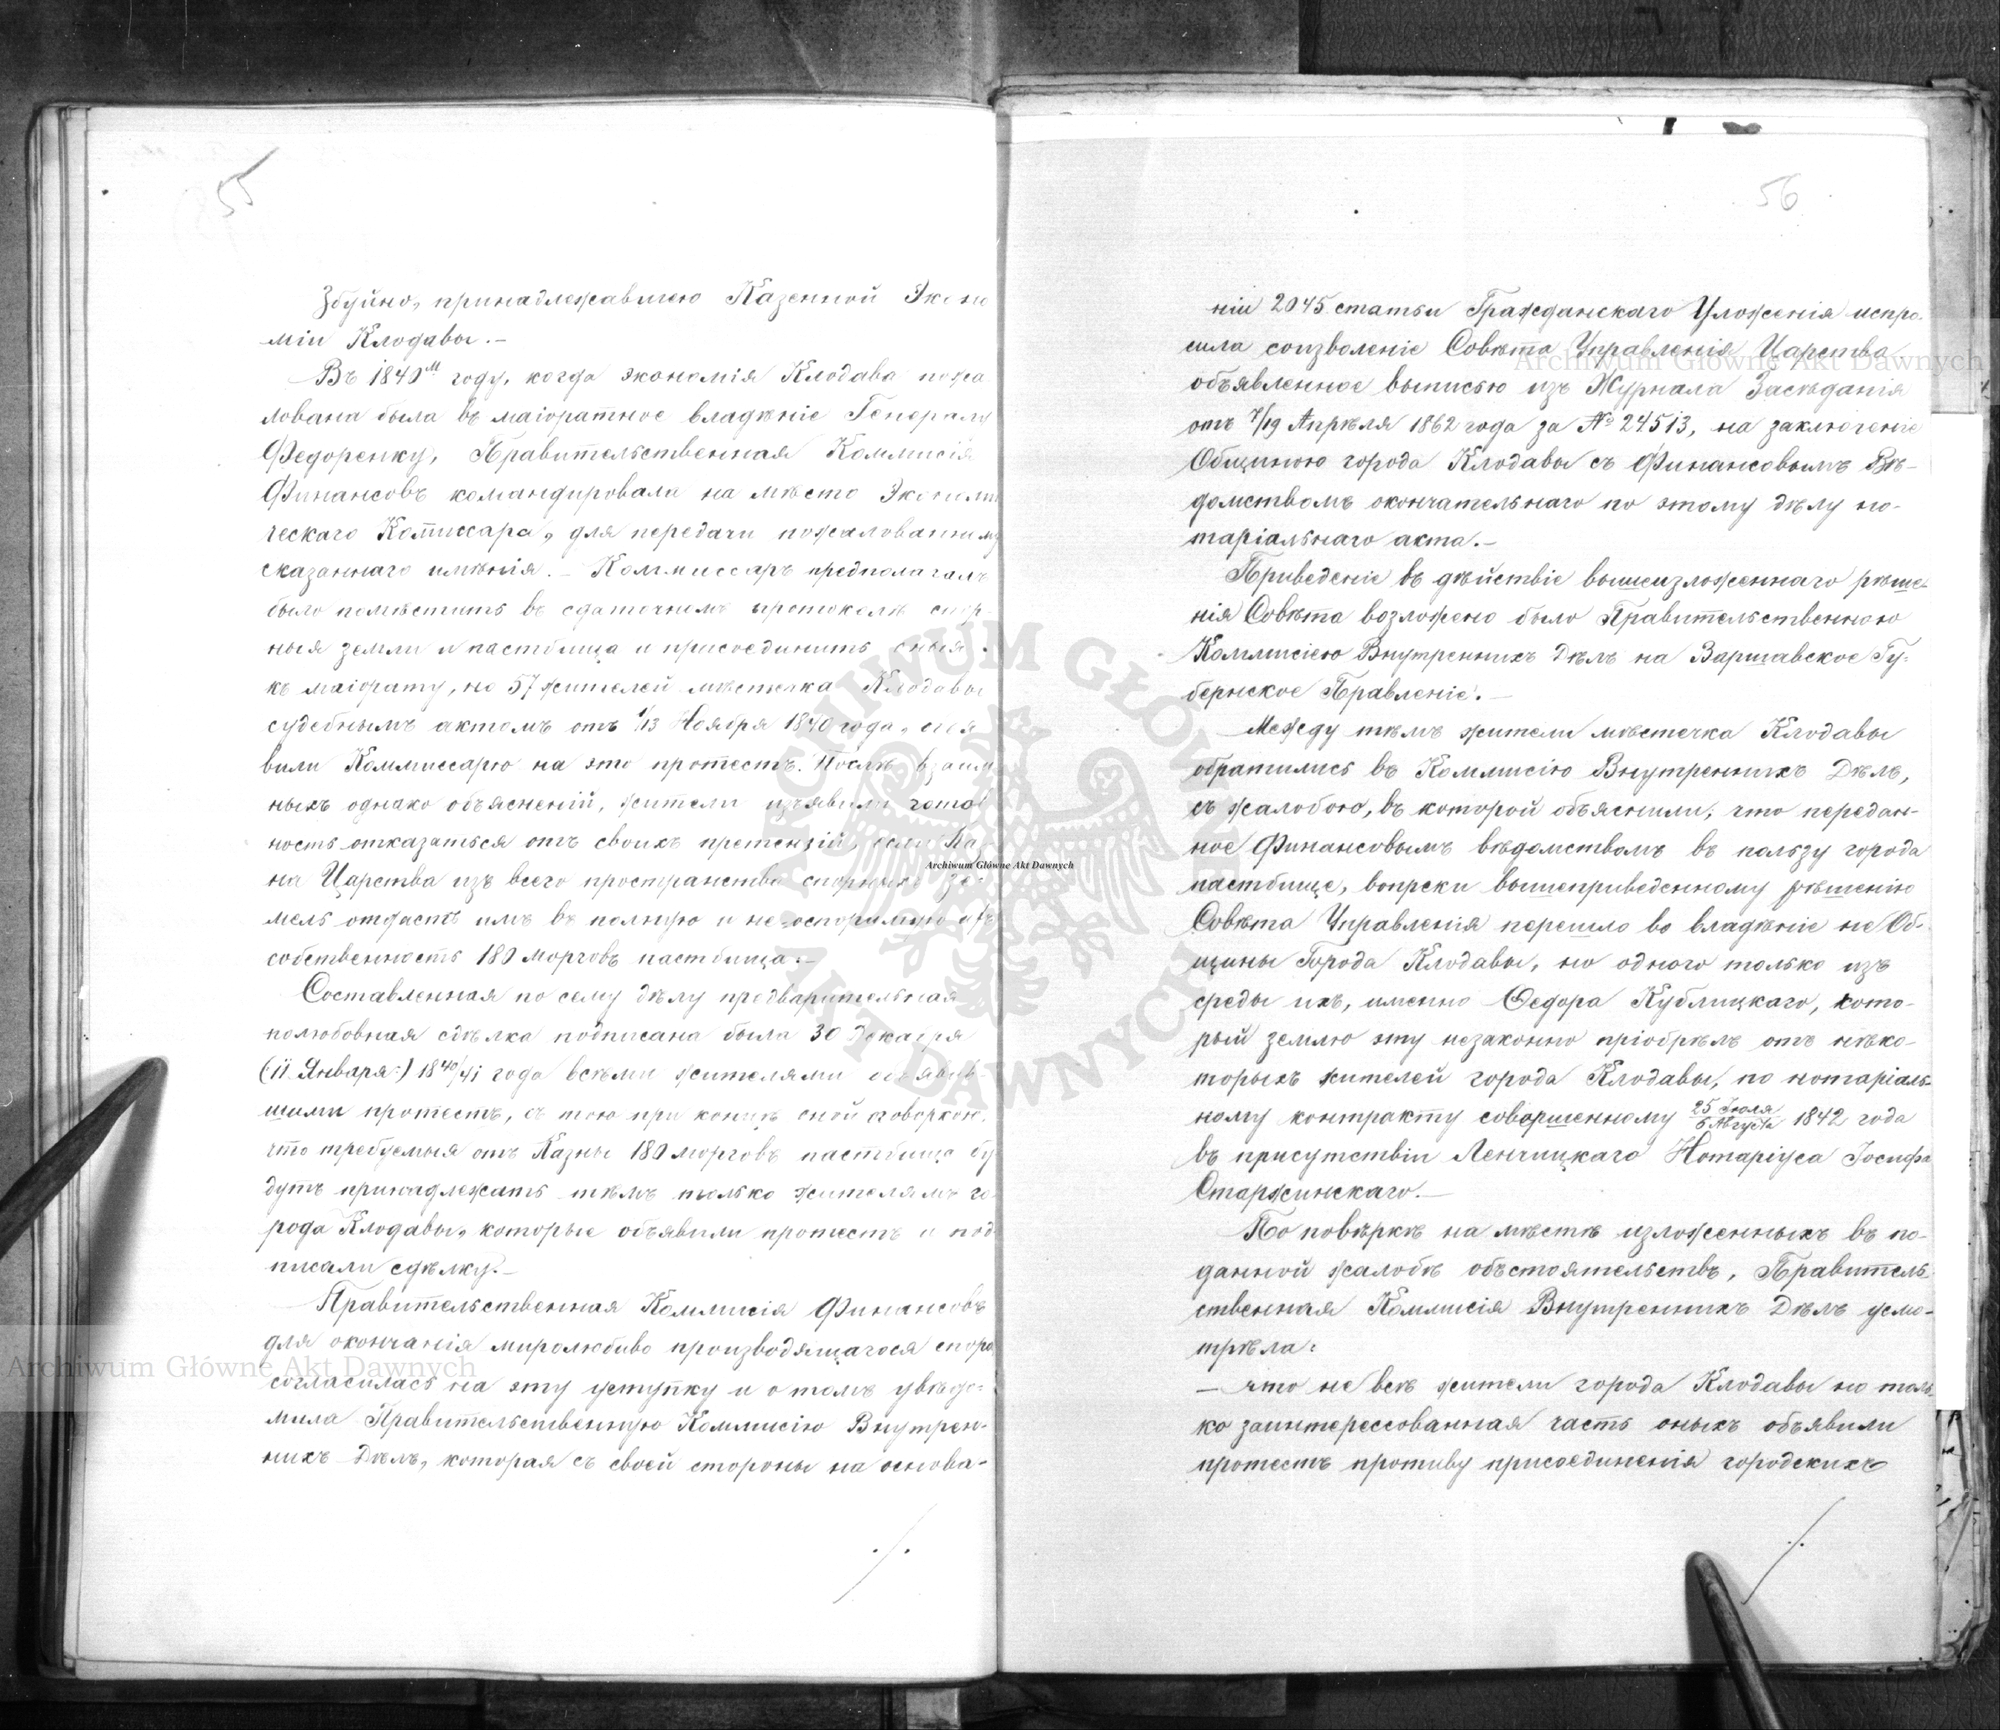 55
Збуйно, принадлежавшею Казенной Эконо
міи Клодавы.—
Въ 1840м году, когда экономія Клодава пожа
лована была въ маіоратное владѣніе Генералу
Федоренку, Правительственная Коммисія
Финансовъ командировала на мѣсто Экономи
ческаго Коммисара, для передачи пожалованному
сказаннаго имѣнія.— Коммиссаръ предполагалъ
было помѣстить въ сдаточномъ протоколѣ спор-
ныя земли и пастбища и присоединить оныя
къ маіорату, но 57 жителей мѣстечка Клодавы
судебнымъ актомъ отъ 1/13 Ноября 1840 года, зая
вили Коммиссарю на это протестъ. Послѣ взаим
ныхъ однако объясненій, жители изъявили готов
ность отказаться отъ своихъ претензій, если Каз
на Царства изъ всего пространства спорныхъ зе-
мель отдастъ имъ въ полную и неоспоримую
собственность 180 морговъ пастбища.—
Составленная по сему дѣлу предварительная
полюбовная сдѣлка подписана была 30 Декабря
(11 Января) 1840/41 года всѣми жителями объявив-
шими протестъ, съ тою при концѣ оной оговоркою,
что требуемыя отъ Казны 180 морговъ пастбища бу
дутъ принадлежать тѣмъ только жителямъ го-
рода Клодавы, которые объявили протестъ и под
писали сдѣлку.—
Правительственная Коммисія Финансовъ
для окончанія миролюбиво производящагося спора
согласилась на эту уступку и о томъ увѣдо-
мила Правительственную Коммисію Внутрен-
нихъ Дѣлъ, которая съ своей стороны на основа-
56
ніи 2045 статьи Гражданскаго Уложенія испро-
сила соизволеніе Совѣта Управленія Царства
объявленное выписью изъ Журнала Засѣданія
отъ 7/19 Апрѣля 1862 года за № 24513, на заключеніе
Общиною города Клодавы съ Финансовымъ Вѣ-
домствомъ окончательнаго по этому дѣлу но-
таріальнаго акта.—
Приведеніе въ дѣйствіе вышеизложеннаго рѣше-
нія Совѣта возложено было Правительственною
Коммисіею Внутреннихъ Дѣлъ на Варшавское Гу-
бернское Правленіе.—
Между тѣмъ жители мѣстечка Клодавы
обратились въ Коммисію Внутреннихъ Дѣлъ,
съ жалобою, въ которой объяснили, что передан-
ное Финансовымъ вѣдомствомъ въ пользу города
пастбище, вопреки вышеприведенному рѣшенію
Совѣта Управленія перешло во владѣніе не Об-
щины Города Клодавы, но одного только изъ
среды ихъ, именно Федора Кублицкаго, кото-
рый землю эту незаконно пріобрѣлъ отъ нѣко-
торыхъ жителей города Клодавы, по нотаріаль-
ному контракту совершенному 25 Іюля/6 Августа 1842 года
въ присутствіи Ленчицкаго Нотаріуса Іосифа
Старжинскаго.—
По повѣркѣ на мѣстѣ изложенныхъ въ по-
данной жалобѣ обстоятельствъ, Правитель-
ственная Коммисія Внутреннихъ Дѣлъ усмо-
трѣла:
— что не всѣ жители города Клодавы но толь-
ко заинтерессованная часть оныхъ объявили
протестъ противу присоединенія городскихъ
Archiwum Główne Akt Dawnych
Archiwum Główne Akt Dawnych
Archiwum Główne Akt Dawnych
ARCHIWUM GŁÓWNE AKT DAWNYCH